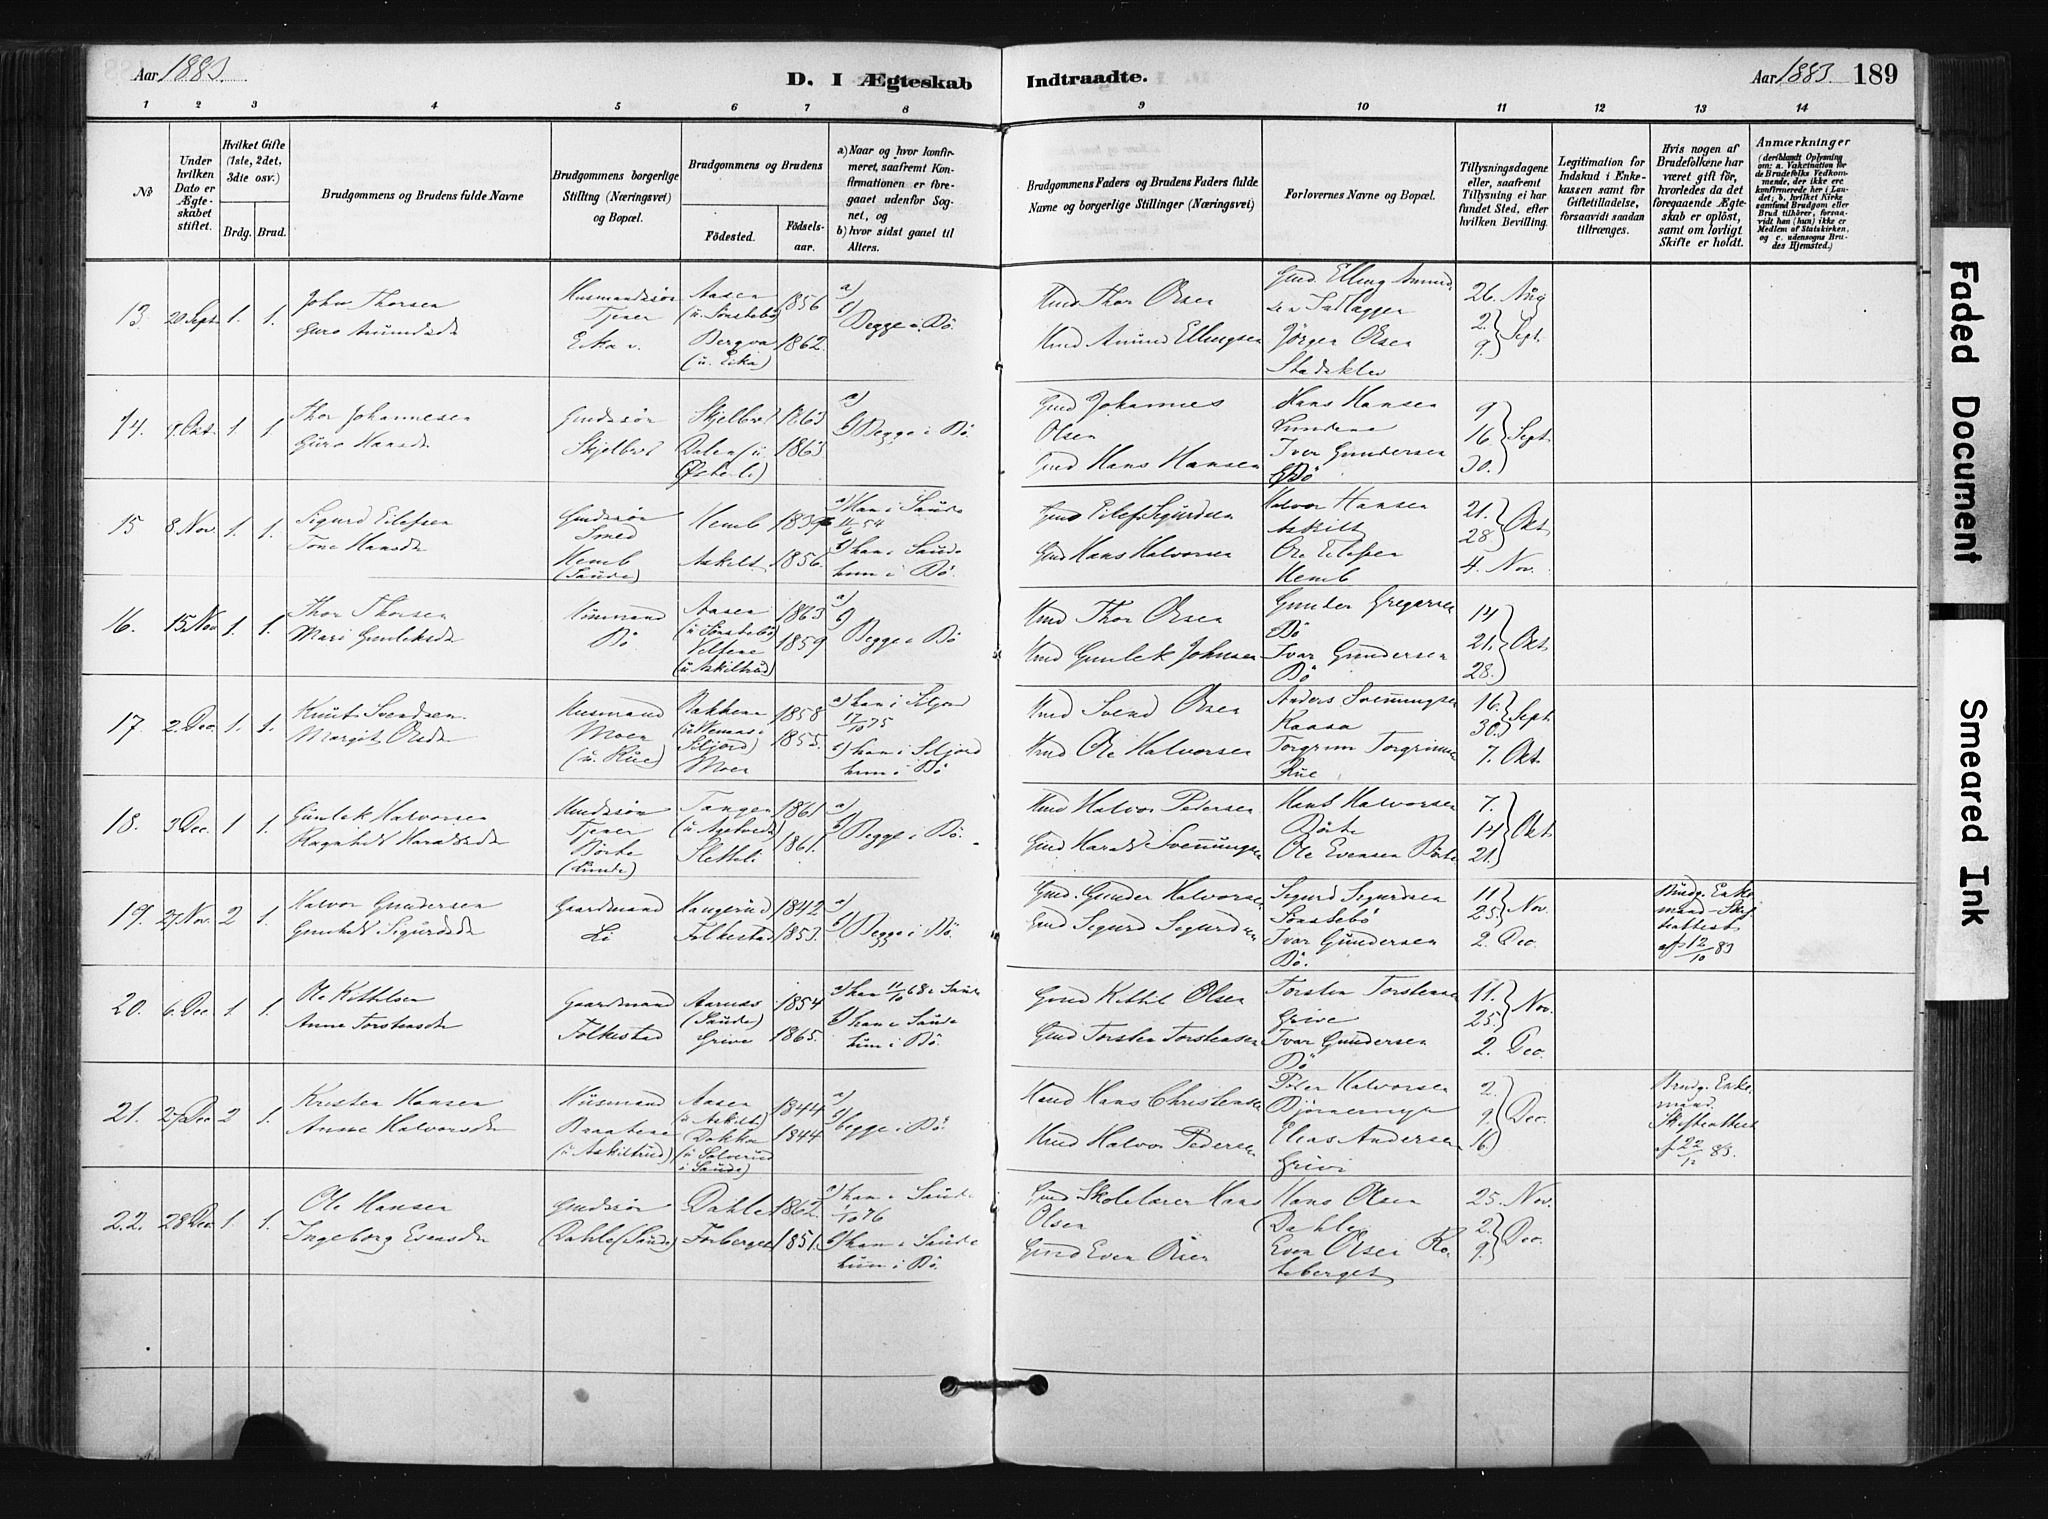 Aar 1883.
D. I Ægteskab
Indtraadte.
Aar 1883. 189
1 2 3 4 5 6 7 8 9 10 11 12 13 14
No
Under hvilken Dato er Ægteskabet stiftet.
Hvilket Gifte (1ste, 2det, 3die osv.)
Brdg. Brud.
Brudgommens og Brudens fulde Navne
Brudgommens borgerlige Stilling (Næringsvei) og Bopæl.
Brudgommens og Brudens
Fødested. Fødselsaar.
a) Naar og hvor konfirmeret, saafremt Konfirmationen er foregaaet udenfor Sognet, og
b) hvor sidst gaaet til Alters.
Brudgommens Faders og Brudens Faders fulde Navne og borgerlige Stillinger (Næringsvei)
Forlovernes Navne og Bopæl.
Tillysningsdagene eller, saafremt Tillysning ei har fundet Sted, efter hvilken Bevilling.
Legitimation for Indskud i Enkekassen samt for Giftetilladelse, forsaavidt saadan tiltrænges.
Hvis nogen af Brudefolkene har været gift før, hvorledes da det foregaaende Ægteskab er opløst, samt om lovligt Skifte er holdt.
Anmærkninger (deriblandt Oplysning om: a. Vakcination for de Brudefolks Vedkommende, der ikke ere konfirmerede her i Landet; b. hvilket Kirkesamfund Brudgom eller Brud tilhører, forsaavidt han (hun) ikke er Medlem af Statskirken, og c. udensogns Brudes Hjemsted.)
13. 20 Sept. 1. 1. John Thorsen Husmandssøn Aasen 1856 a) Hmd Thor Olsen Gmd. Elling Amund- 26. Aug
Guro Amundsdr Tjener (u. Sønstebø) b) Begge i Bø. sen 2. Sept.
Eika Bergva 1862. Hmd Amund Ellingsen Jørgen Olsen 9.
(u. Eika) Stadskleiv
14. 1 1 Thor Johannesen Gmdssøn Skjelbred 1863 a) Gmd Johannes Hans Hansen 9
Guro Hansdr Skjelbred Dalen (u. 1863. b) Begge i Bø. Olsen 16. Sept.
Østerli) Gmd Hans Hansen Iver Gundersen 30.
Bø
15 8 Nov. 1. 1. Sigurd Eilefsen Gmdssøn Hemb a) Han i Saude Gmd Eilef Sigurdsen Halvor Hansen 21. Okt
Tone Hansdr Smed 11/6 54 Askilt 28
Hemb Askilt 1856. b) han i Saude Gmd Hans Halvorsen Ole Eilefsen 4. Nov.
(Saude) hun i Bø. Hemb
16. 15 Nov 1. 1. Thor Thorsen Husmand Aasen 1863 a) Hmd Thor Olsen Gunder Gregersen 14
Mari Gunleksdr Bø (u. Sønstebø) b) Begge i Bø Bø 21. Okt
1859 Hmd Gunlek Johnsen Ivar Gundersen 28.
(u. Askiltrud) Bø
17. 2. Dec. 1. 1. Knut Svendsen Husmand Bakken 1858 a) han i Seljord Hmd Svend Olsen Anders Svenningsen 16. Sept
Margit Olsdr Moen 17/10 75 Kaasa 30.
(u. Rue) Seljord) 1855. b) han i Seljord Hmd Ole Halvorsen Torgrim Torgrimsen 7. Okt.
Moen hun i Bø Rue
18. 3 Dec. 1 1. Gunlek Halvorsen Hmdssøn Tangen 1861 a) Hmd Halvor Pedersen Hans Halvorsen 7.
Ragnhild Haraldsdr Tjener b) Begge i Bø. Børte 14 Okt.
Børte Sletteli 1861. Gmd Harald Svenningsen Ole Evensen Børte 21.
(Lunde)
19. 27 Nov. 2 1. Halvor Gundersen Gaardmand Haugerud 1842 a) Gmd. Gunder Halvorsen Sigurd Sigurdsen 11. Nov. Brudg. Enke-
Gunhild Sigurdsdr Li Folkestad 1853. b) Begge i Bø. Gmd Sigurd Sigurdsen Sønstebø 25. mand - Skif-
Ivar Gundersen 2. Dec. teattest
Bø. af 12/10 83
20. 6 Dec. 1 1. Ole Kittilsen Gaardmand Aarnes 1854 a) han 11/10 68 i Saude Gmd Kittil Olsen Torsten Torstensen 11. Nov.
Anne Torstensdr Folkestad (Saude) b) han i Saude Grive 25.
Grive 1865. hun i Bø. Gmd Torsten Torstensen Ivar Gundersen 2. Dec.
Bø
21. 27 Dec 2 1. Kristen Hansen Husmand Aasen 1844 a) Hmd Hans Christensen Peter Halvorsen 2. Brudg. Enke-
Anne Halvorsdr Braatene (u. Askilt) b) begge i Bø. Bjørnemyr 9. Dec. mand.
(u. Askiltrud) 1844 Hmd Halvor Pedersen Elias Andersen 16 Skifteattest
i Saude) Grivi af 22/12 83.
22. 28 Dec. 1 1. Ole Hansen Gmdssøn Dahle 1862. a) han i Saude Gmd Skolelærer Hans Hans Olsen 25. Nov.
Ingeborg Evensdr Dahle (Saude) Forberget 1851. 1/10 76 Olsen Dahle 2. Dec.
b) han i Saude Gmd Even Olsen Even Olsen Ro- 9.
hun i Bø. leberget
Faded Document
Smeared Ink